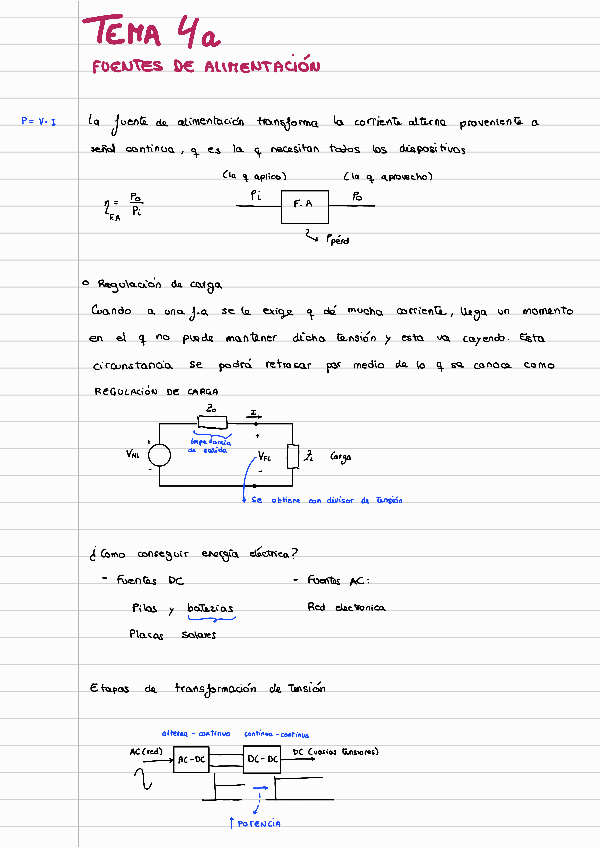 TEMA 4a
FUENTES DE ALIMENTACIÓN
P = V · I
La fuente de alimentación transforma la corriente alterna proveniente a
señal continua, q es la q necesitan todos los dispositivos
(la q aplico) (la q aprovecho)
η_FA = Po / Pi
Pi F.A Po
Ppérd
Regulación de carga
Cuando a una f.a se le exige q dé mucha corriente, llega un momento
en el q no puede mantener dicha tensión y esta va cayendo. Esta
circunstancia se podrá retrasar por medio de lo q se conoce como
REGULACIÓN DE CARGA
Zo I
impedancia
de salida
VNL + - + VFL - ZL Carga
se obtiene con divisor de tensión
¿Como conseguir energía eléctrica?
- Fuentes DC - Fuentes AC:
Pilas y baterías Red electronica
Placas solares
Etapas de transformación de tensión
alterna - continua continua - continua
AC (red) AC-DC DC-DC DC (varias tensiones)
↑ POTENCIA